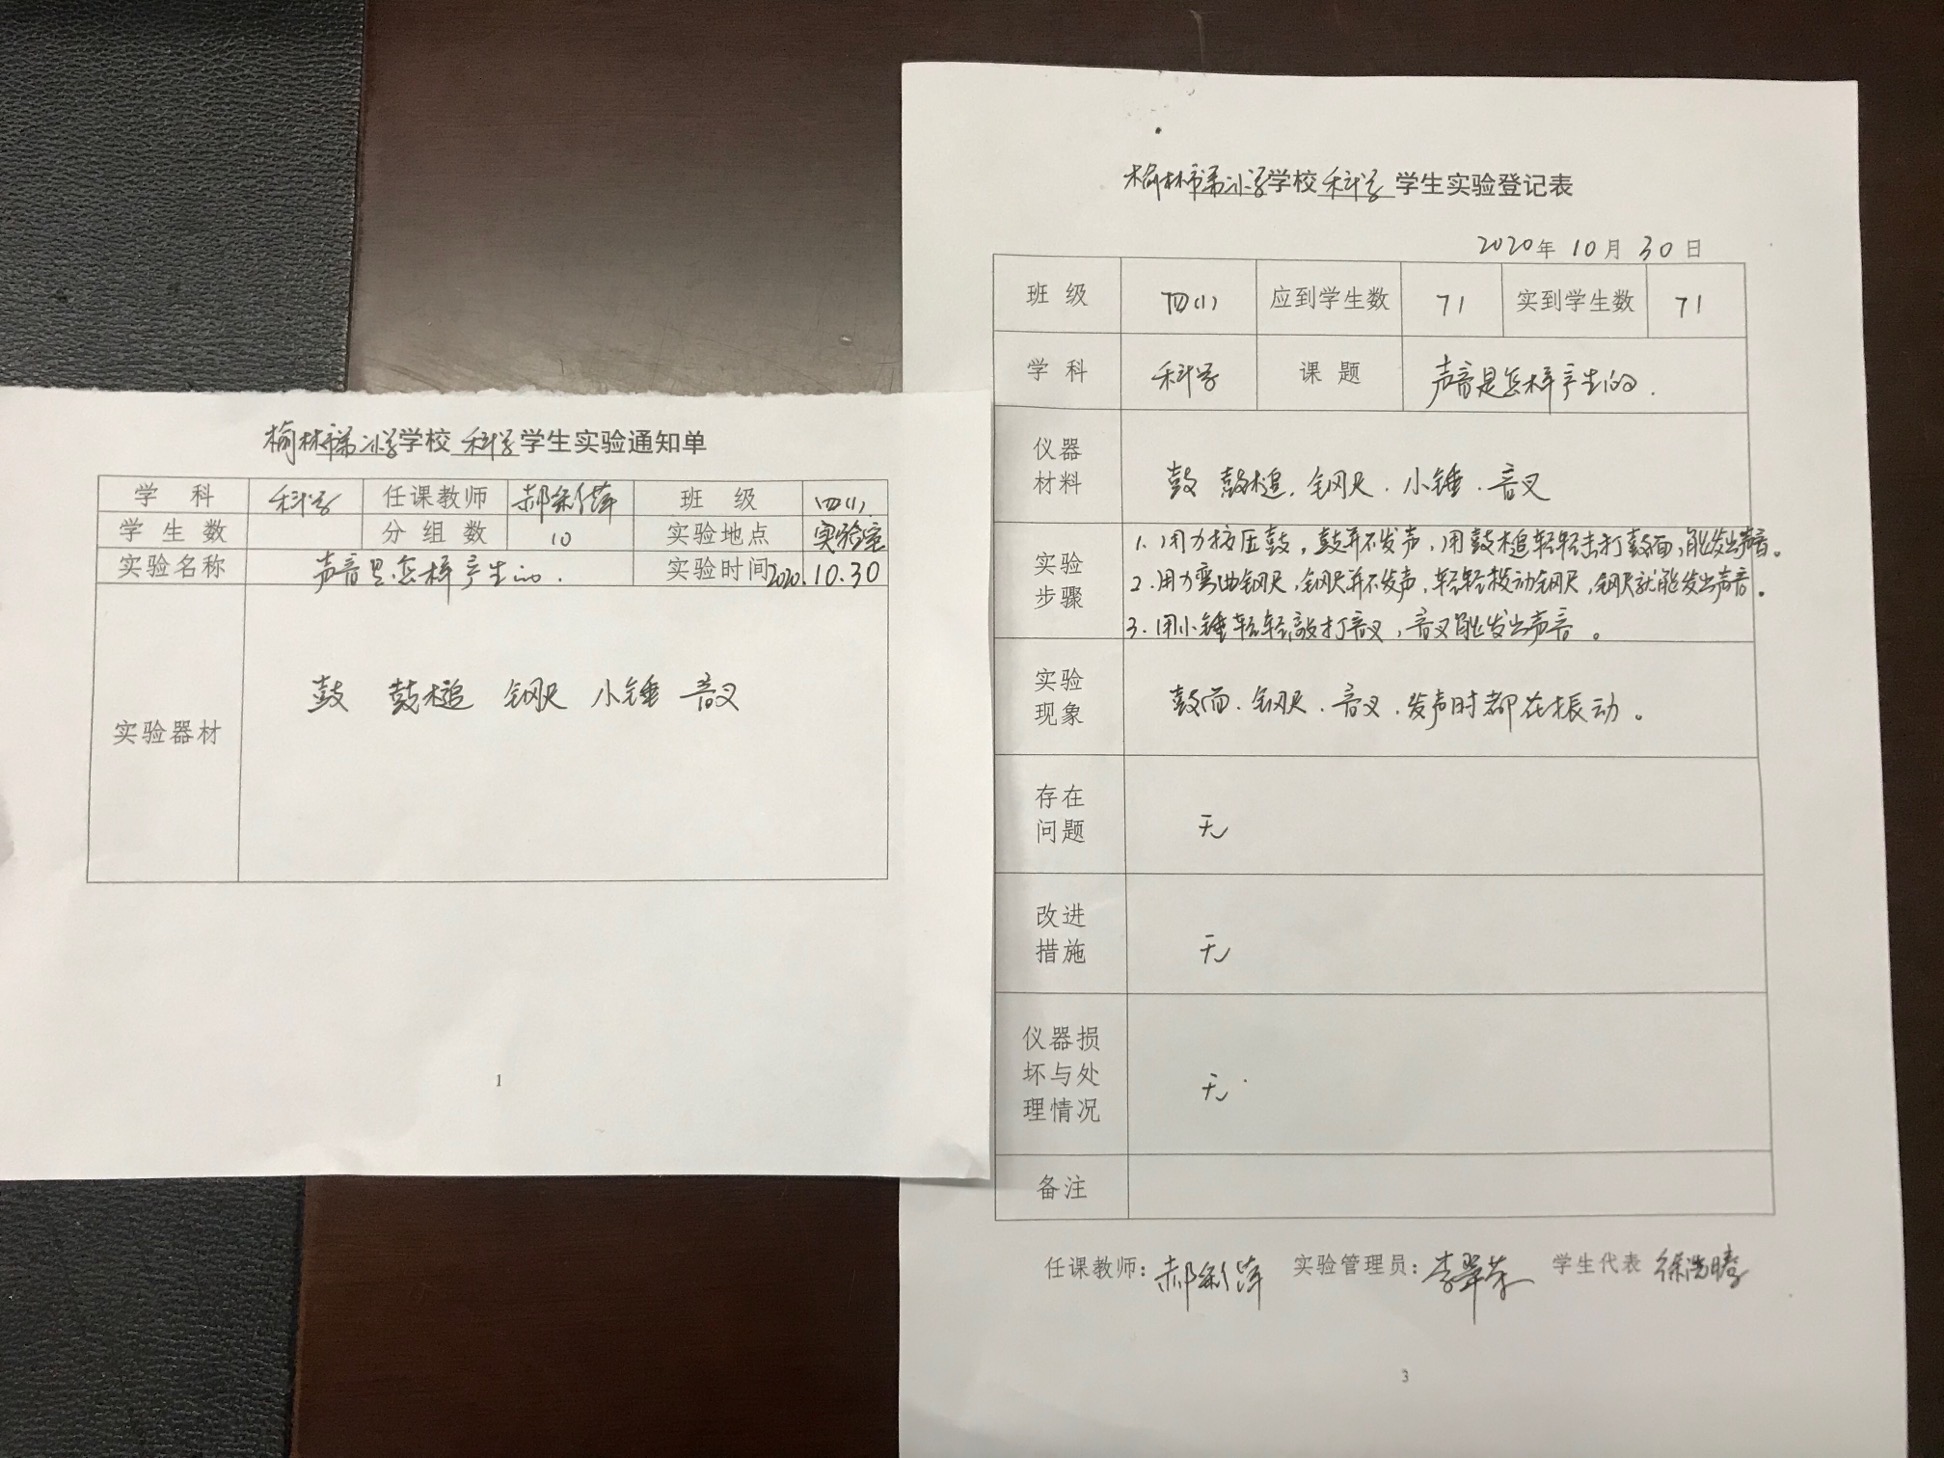 榆林市第 小学学校 科学 学生实验通知单
学 科 科学 任课教师 郝彩萍 班 级 四(1)
学生数 分组数 10 实验地点 实验室
实验名称 声音是怎样产生的. 实验时间 2020.10.30
实验器材 鼓 鼓槌 钢尺 小锤 音叉
1
榆林市第 小学学校 科学 学生实验登记表
2020年 10月 30日
班 级 四(1) 应到学生数 71 实到学生数 71
学 科 科学 课 题 声音是怎样产生的.
仪器
材料
鼓 鼓槌. 钢尺. 小锤. 音叉
实验
步骤
1. 用力按压鼓,鼓并不发声,用鼓槌轻轻击打鼓面,能发出声音。
2. 用力弯曲钢尺,钢尺并不发声,轻轻拨动钢尺,钢尺就能发出声音。
3. 用小锤轻轻敲打音叉,音叉能发出声音。
实验
现象
鼓面. 钢尺. 音叉. 发声时都在振动。
存在
问题
无
改进
措施
无
仪器损
坏与处
理情况
无
备注
任课教师: 郝彩萍 实验管理员: 李翠芬 学生代表 徐浩
3